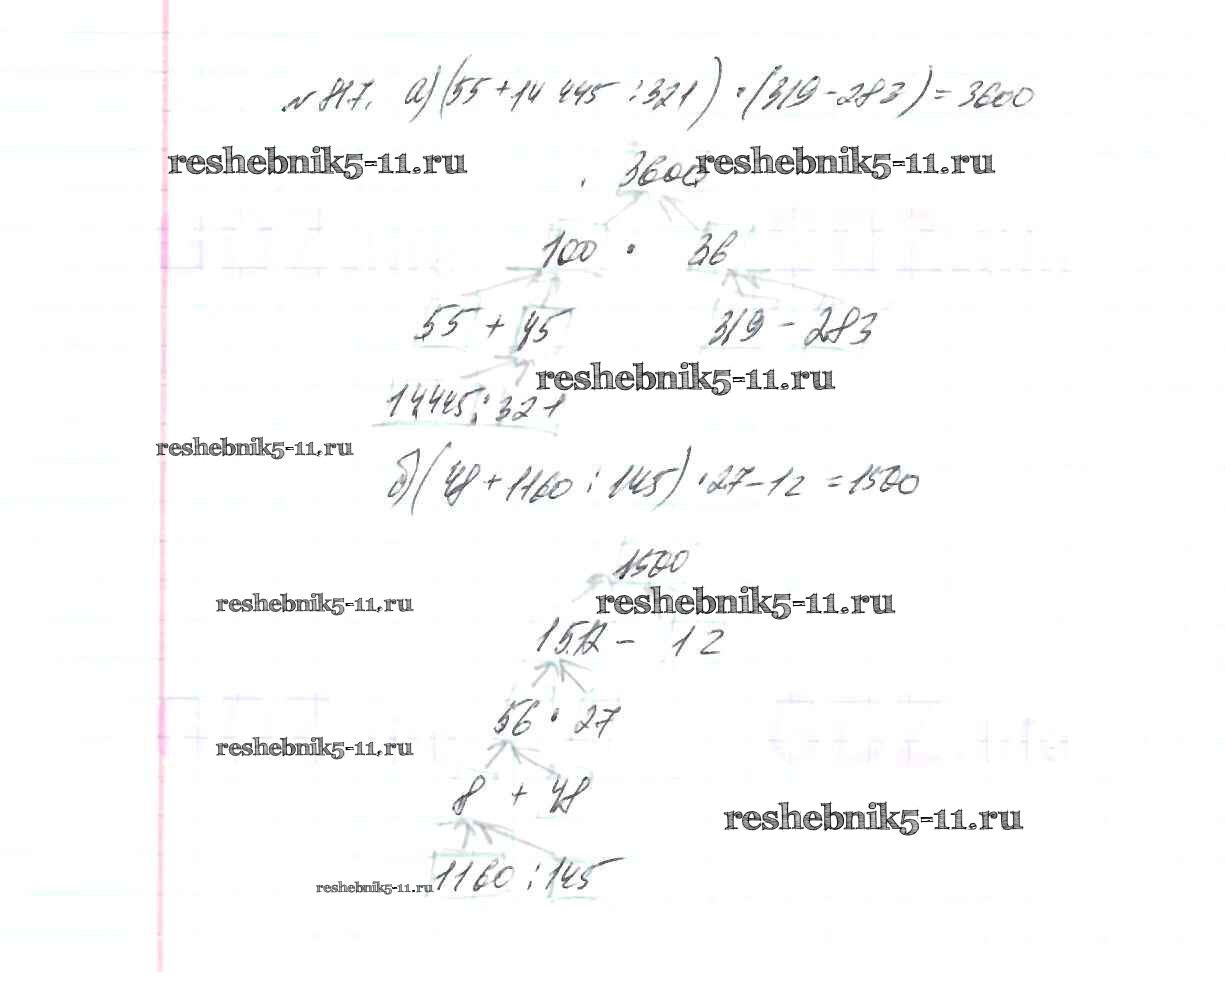 № 817. а) (55 + 14 445 : 321) · (319 - 283) = 3600
reshebnik5-11.ru reshebnik5-11.ru
3600
100 · 36
55 + 45 319 - 283
reshebnik5-11.ru
14445 : 321
reshebnik5-11.ru
б) (48 + 1160 : 145) · 27 - 12 = 1500
1500
reshebnik5-11.ru reshebnik5-11.ru
1512 - 12
56 · 27
reshebnik5-11.ru
8 + 48
reshebnik5-11.ru
reshebnik5-11.ru 1160 : 145